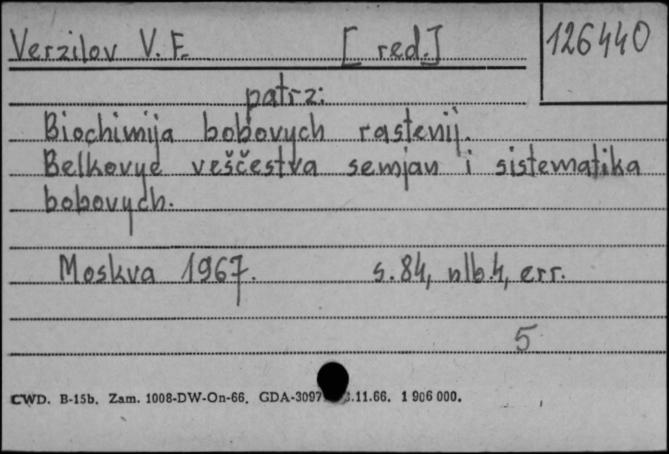 Verzilov V. F. [red.] 126440
patrz:
Biochimija bobovych rastenij.
Belkovye veščestva semjan i sistematika
bobovych.
Moskva 1967. s. 84, nlb. 4, err.
5
CWD. B-15b. Zam. 1008-DW-On-66. GDA-3097 .11.66. 1 906 000.